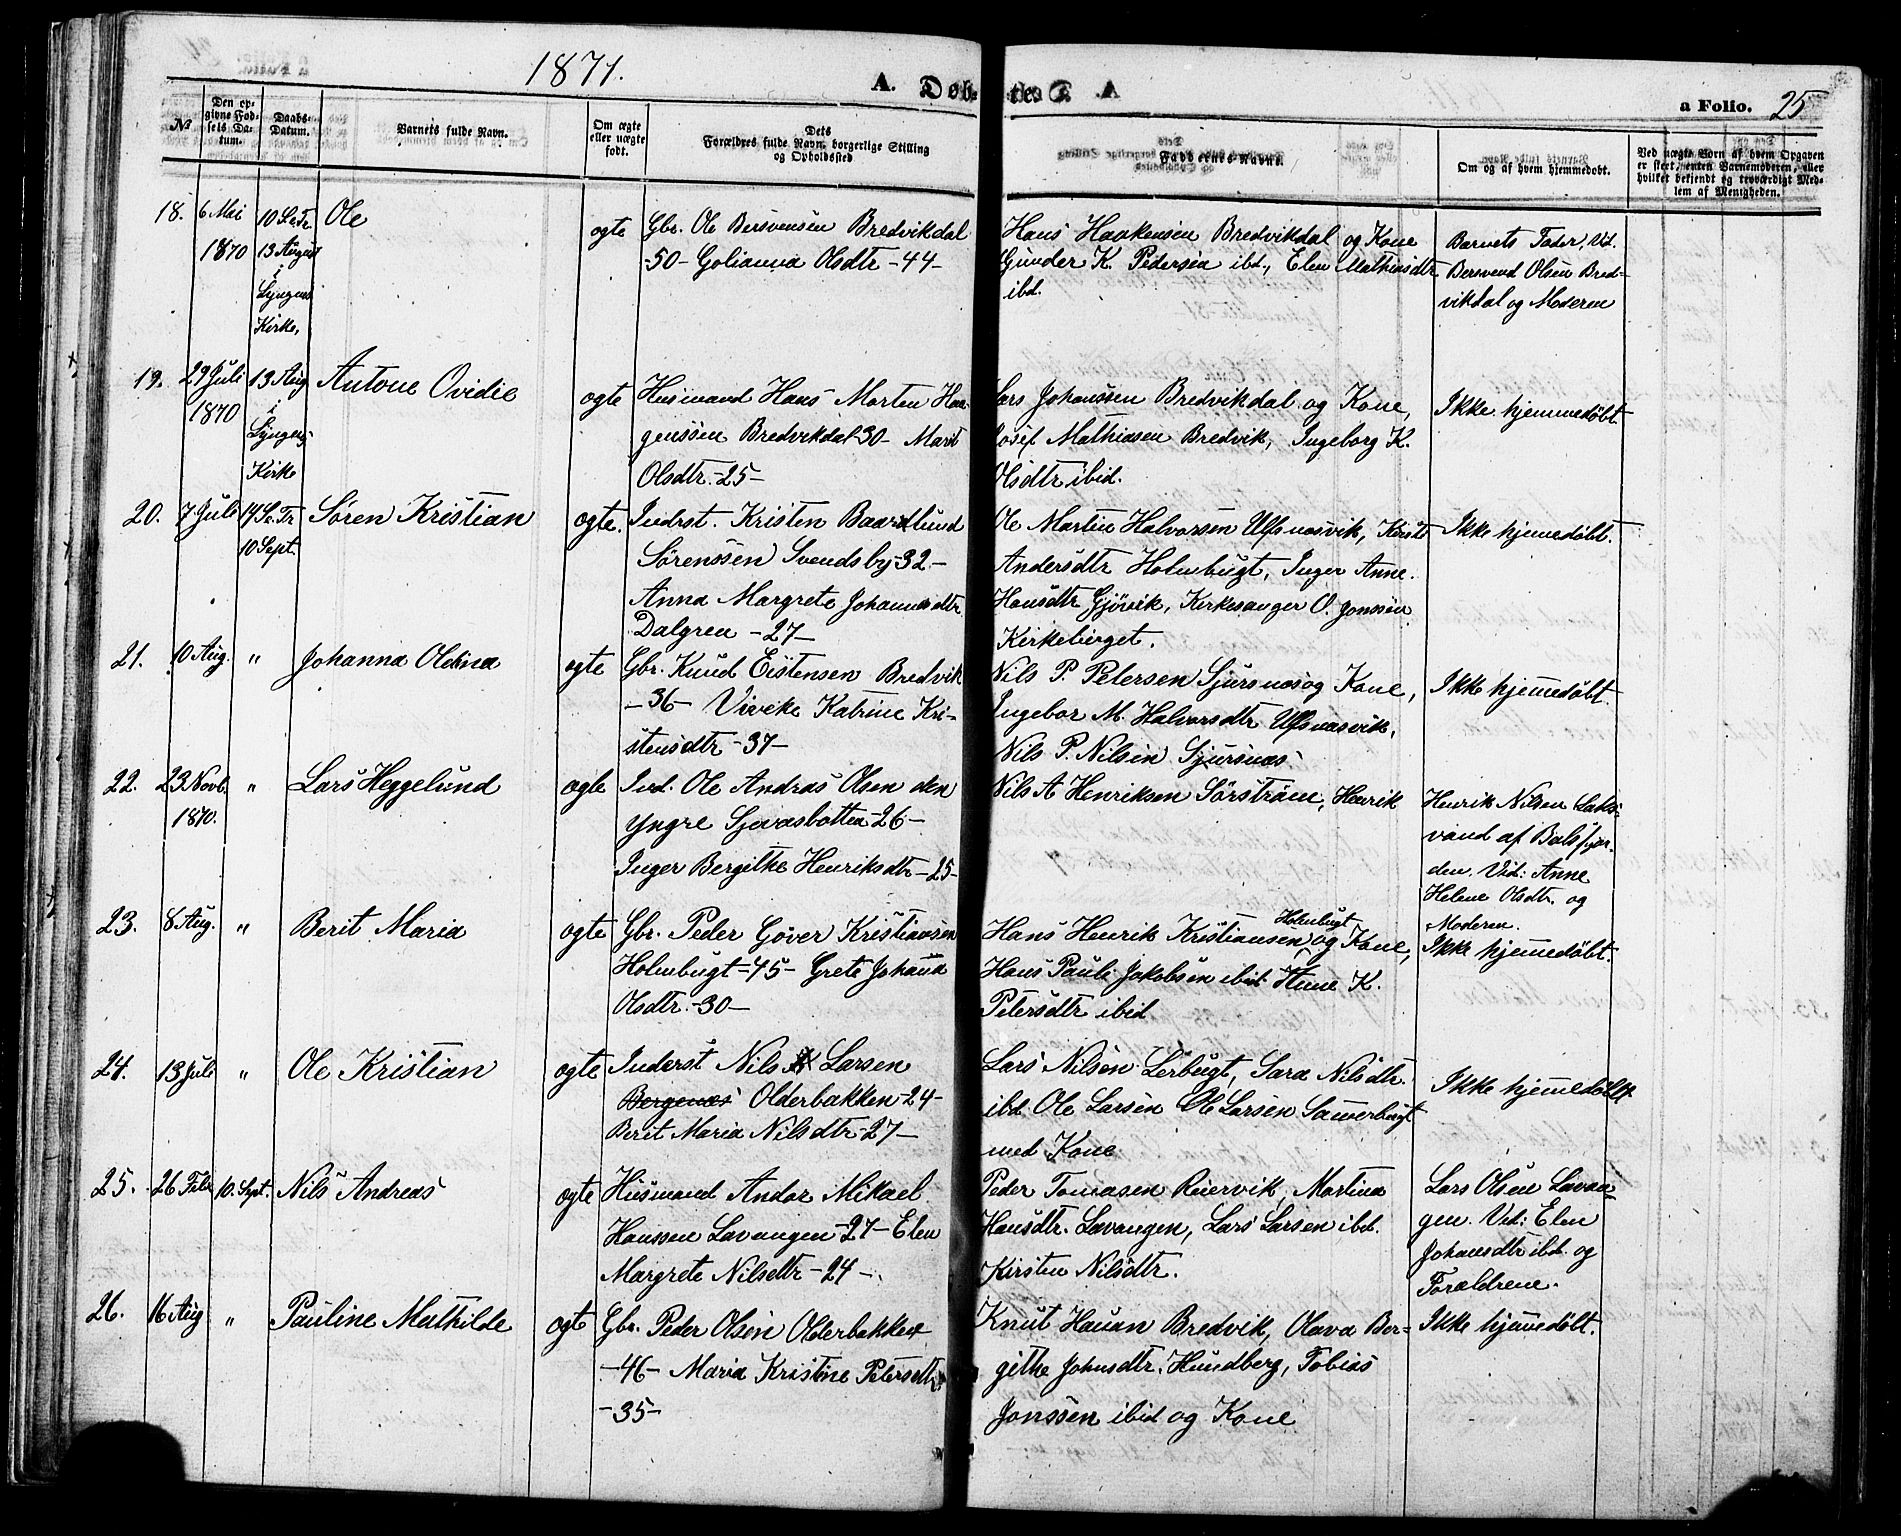 1871.
A. Døbte.
a Folio. 25
№
Den op-
givne Fød-
sels Da-
tum.
Daabs-
Datum.
Barnets fulde Navn.
Om ægte
eller uægte
født.
Dets
Forældres fulde Navn, borgerlige Stilling
og Opholdssted
Faddernes Navne.
Om og af hvem hjemmedøbt.
Ved uægte Børn af hvem Opgaven
er skeet, enten Barnemoderen, eller
hvilket bekjendt og troværdigt Med-
lem af Menigheden.
18.
6 Mai
1870
10 S.e.Tr.
13 August
i
Lyngens
Kirke,
Ole
ogte
Gbr. Ole Bersvensen Bredvikdal
-50- Golianna Olsdtr -44-
Hans Haakensen Bredvikdal og Kone
Gunder K. Pedersen ibd., Elen Mathiasdtr
ibd.
Barnets Fader, Vid.
Bersvend Olsen Bred-
vikdal og Moderen
19.
29 Juli
1870
13 Aug
i
Lyngens
Kirke
Antone Ovidie
ogte
Husmand Hans Morten Haa-
genssen Bredvikdal-30- Marit
Olsdtr.-25-
Lars Johanssen Bredvikdal og Kone,
Josef Mathiasen Bredvik, Ingeborg K.
Olsdtr ibid.
Ikke hjemmedøbt.
20.
7 Juli
14 S.e.Tr
10 Sept.
Søren Kristian
ogte.
Inderst. Kristen Baardlund
Sørenssen Svendsby-32-
Anna Margrete Johannesdtr
Dalgren -27-
Ole Martin Halvorsen Ulfsnæsvik,
Andersdtr Holmbugt, Inger Anne
Hansdtr Gjøvik, Kirkesanger O. Jonssen
Kirkeberget.
Ikke hjemmedøbt.
21.
10 Aug.
"
Johanna Oldina
ogte
Gbr. Knud Eistensen Bredvik
-36- Viveke Katrine Kri-
stensdtr -37-
Nils P. Petersen Sjursnæs og Kone,
Ingebor M. Halvorsdtr Ulfsnæsvik,
Nils P. Nilsen Sjursnæs
Ikke hjemmedøbt.
22.
23 Novb.
1870.
"
Lars Heggelund
ogte
Ind. Ole Andras Olsen den
yngre Sjovasbotten-26-
Inger Bergithe Henriksdtr -25-
Nils A Henriksen Sørstrøm, Henrik
Henrik Nilsen Laks-
vand af Balsfjor-
den. Vid: Anne
Helene Olsdtr. og
Moderen.
23.
8 Aug.
"
Berit Maria
ogte
Gbr. Peder Gøver Kristiansen
Holmbugt-45- Grete Johanna
Olsdtr.-30-
Holmbugt
Hans Henrik Kristiansen og Kone,
Hans Pauli Jakobsen ibid. K.
Petersdtr ibid
Ikke hjemmedøbt.
24.
13 Juli
"
Ole Kristian
ogte
Inderst Nils Larsen
Bergenæs Olderbakken-24-
Berit Maria Nilsdtr-27-
Lars Nilsen Lerbugt, Sara Nilsdtr.
ibd. Ole Larsen Ole Larsen
med Kone
Ikke hjemmedøbt
25.
26 Febr
10. Sept.
Nils Andreas
ogte
Husmand Andor Mikael
Hanssen Lavangen-27- Elen
Margrete Nilsdtr -24-
Peder Tomasen Reiervik, Martina
Hansdtr. Lavangen, Lars Larsen ibd.
Kirsten Nilsdtr.
Lars Olsen Lavan-
gen. Vid: Elen
Johansdtr ibd. og
Forældrene.
26.
16 Aug
"
Pauline Mathilde
ogte
Gbr. Peder Olsen Olderbakken
-46- Maria Kristine Petersdtr
-35-
Knut Hauan Bredvik, Olava Ber-
githe Johnsdtr. Hundberg, Tobias
Jonssen ibid og Kone
Ikke hjemmedøbt.